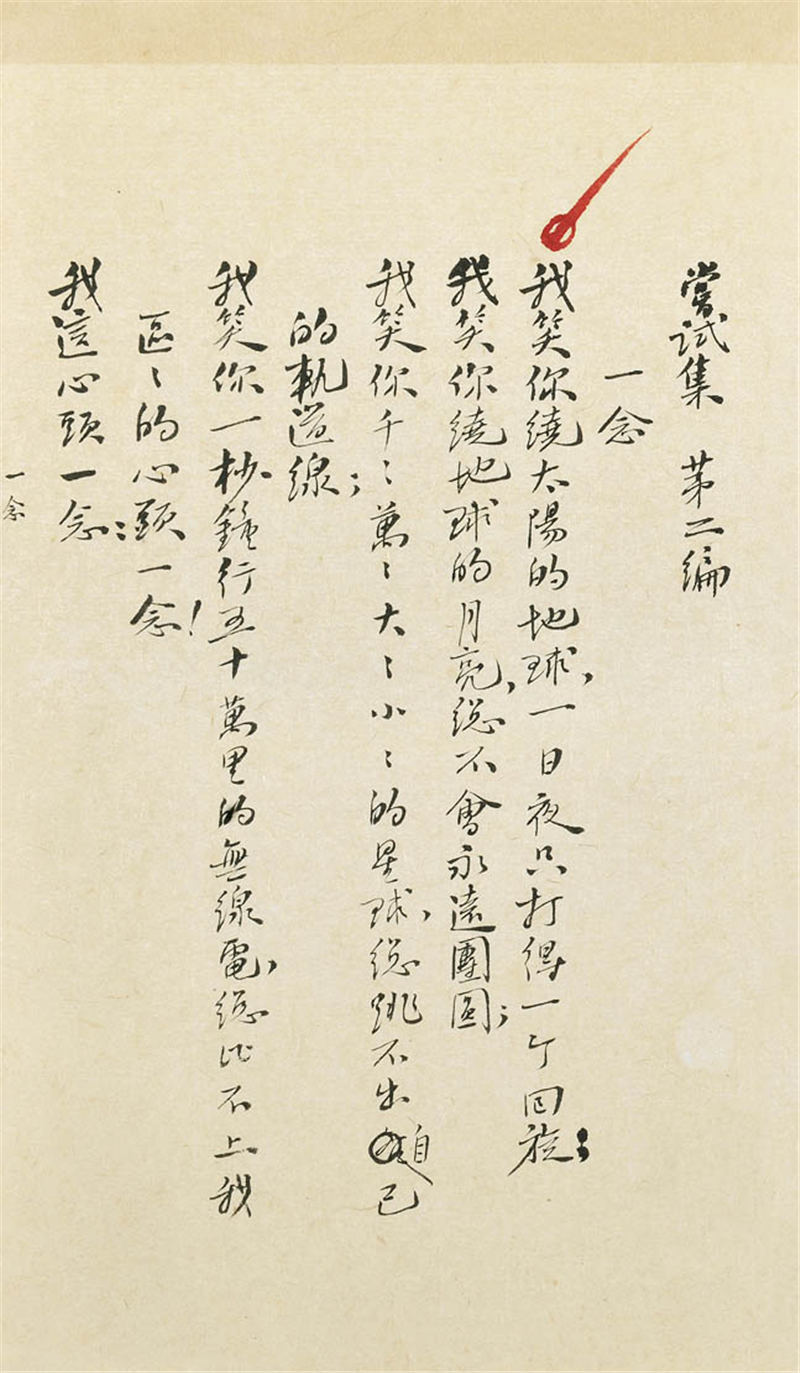 嘗試集 第二編
一念
我笑你繞太陽的地球,一日夜只打得一个回旋;
我笑你繞地球的月亮,總不會永遠團圓;
我笑你千〻萬〻大〻小〻的星球,總跳不出自己
的軌道線;
我笑你一秒鐘行五十萬里的無線電,總比不上我
區〻的心頭一念!
我這心頭一念:
一念